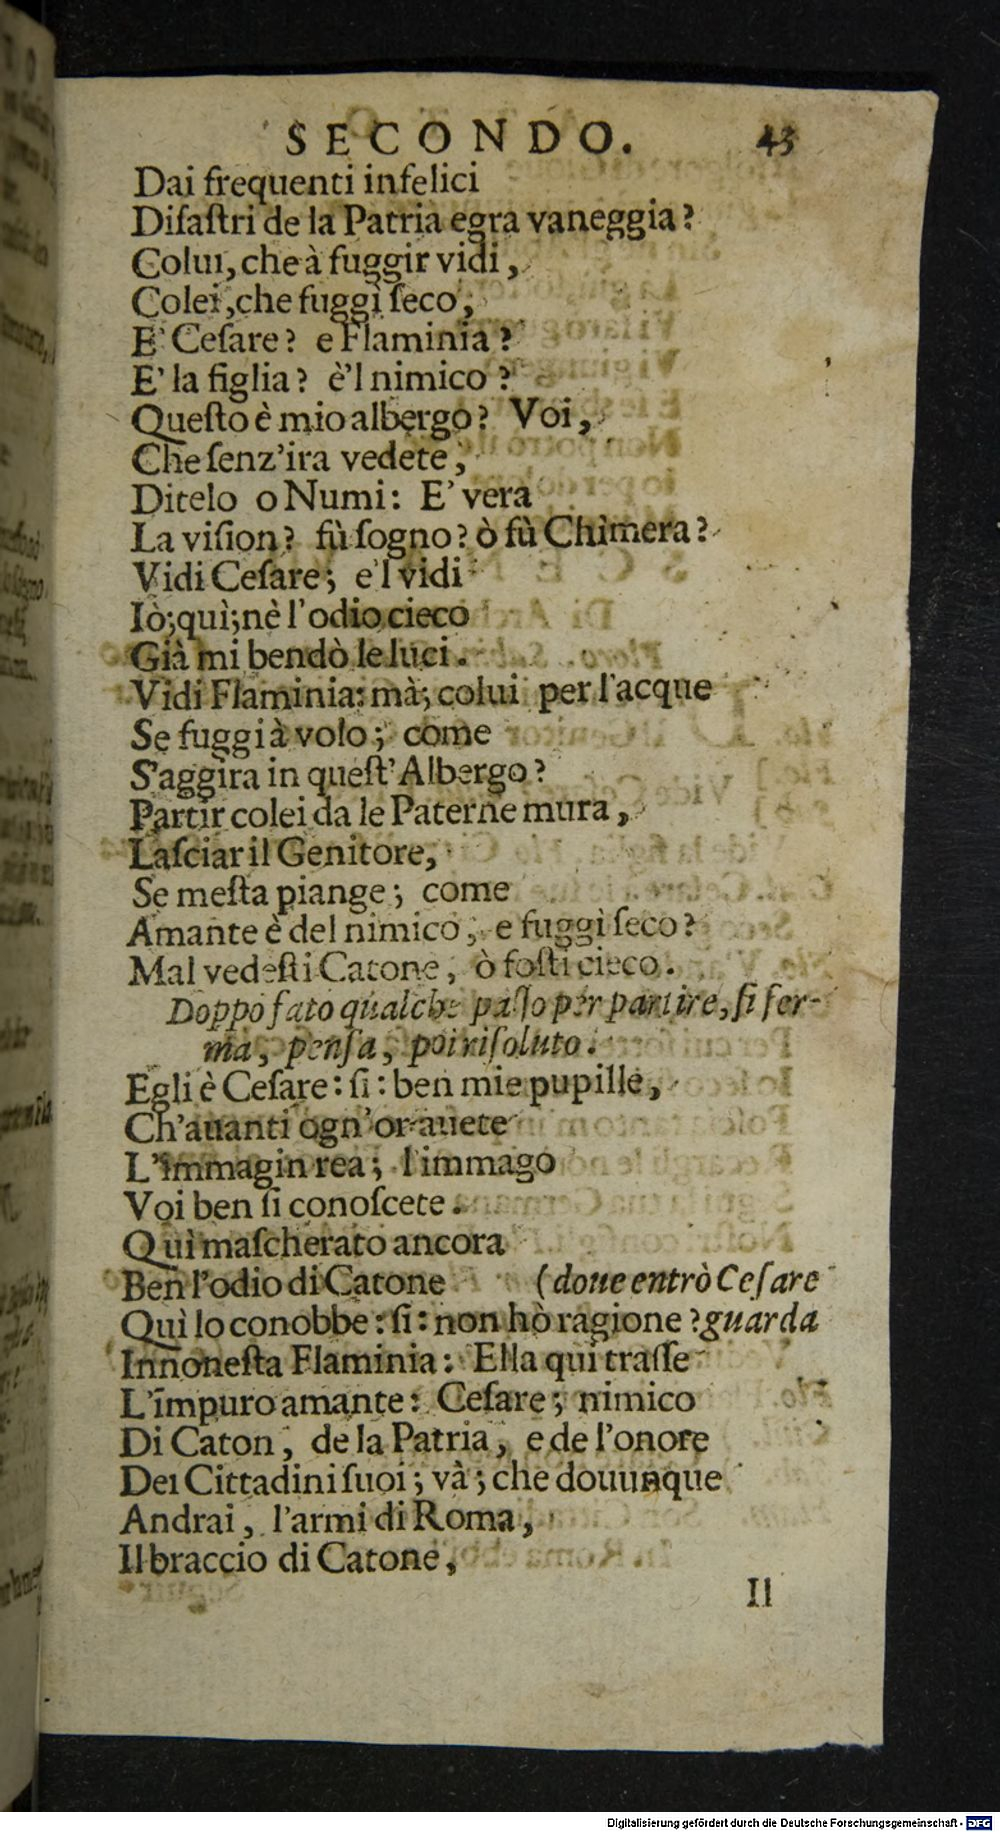 SECONDO. 43
Dai frequenti infelici
Diſaſtri de la Patria egra vaneggia?
Colui, che à fuggir vidi,
Colei, che fuggì ſeco,
E' Ceſare? e Flaminia?
E' la figlia? è'l nimico?
Queſto è mio albergo? Voi,
Che ſenz'ira vedete,
Ditelo o Numi: E' vera
La viſion? fù ſogno? ò fù Chimera?
Vidi Ceſare; e'l vidi
Iò; quì; nè l'odio cieco
Già mi bendò le luci.
Vidi Flaminia: mà; colui per l'acque
Se fuggì à volo; come
S'aggira in queſt'Albergo?
Partir colei da le Paterne mura,
Laſciar il Genitore,
Se meſta piange; come
Amante è del nimico, e fuggì ſeco?
Mal vedeſti Catone, ò foſti cieco.
Doppo fato qualche paſſo per partire, ſi fer-
ma, penſa, poi riſoluto.
Egli è Ceſare: ſi: ben mie pupille,
Ch'auanti ogn'or auete
L'immagin rea; l'immago
Voi ben ſi conoſcete.
Quì maſcherato ancora
Ben l'odio di Catone (doue entrò Ceſare
Quì lo conobbe: ſi: non hò ragione? guarda
Innoneſta Flaminia: Ella qui traſſe
L'impuro amante: Ceſare; nimico
Di Caton, de la Patria, e de l'onore
Dei Cittadini ſuoi; và; che douunque
Andrai, l'armi di Roma,
Il braccio di Catone,
Il
Digitalisierung gefördert durch die Deutsche Forschungsgemeinschaft - DFG